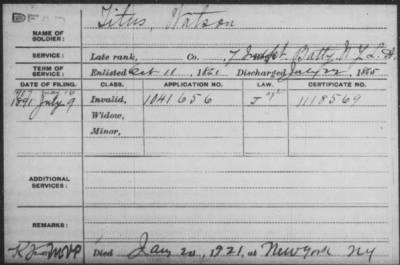 Titus, Watson
NAME OF SOLDIER:
SERVICE: Late rank, Co. 7 Indpt. Batty. N.Y. L. A.
TERM OF SERVICE: Enlisted Oct 11, 1861 Discharged July 22, 1865
DATE OF FILING. CLASS. APPLICATION NO. LAW. CERTIFICATE NO.
1891 July 9 Invalid, 1041656 J 1118569
Widow,
Minor,
ADDITIONAL SERVICES:
REMARKS:
Died Jan 20, 1921, at New York NY